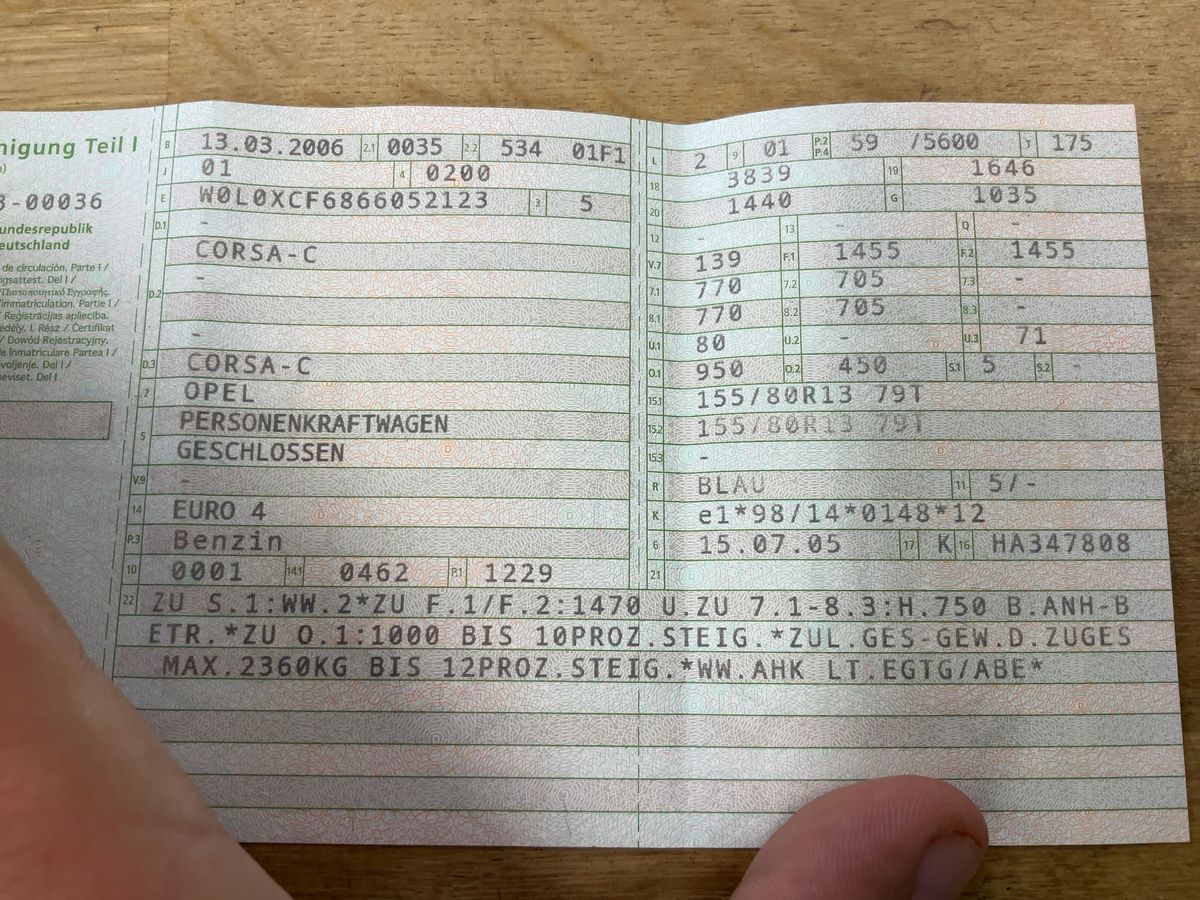 nigung Teil I
3-00036
undesrepublik
eutschland
de circulación. Parte I /
ngsattest. Del I /
Πιστοποιητικό Εγγραφής.
immatriculation. Partie I /
Reģistrācijas apliecība.
edély. I. Rész / Certifikat
/ Dowód Rejestracyjny.
de Inmatriculare Partea I /
voljenje. Del I /
beviset. Del I
B 13.03.2006 2.1 0035 2.2 534 01F1
J 01 4 0200
E W0L0XCF6866052123 3 5
D.1 -
CORSA-C
D.2 -
-
D.3 CORSA-C
2 OPEL
5 PERSONENKRAFTWAGEN
GESCHLOSSEN
V.9 -
14 EURO 4
P.3 Benzin
10 0001 14.1 0462 P.1 1229
L 2 9 01 P.2 P.4 59 /5600 T 175
18 3839 19 1646
20 1440 G 1035
12 - 13 - Q -
V.7 139 F.1 1455 F.2 1455
7.1 770 7.2 705 7.3 -
8.1 770 8.2 705 8.3 -
U.1 80 U.2 - U.3 71
O.1 950 O.2 450 S.1 5 S.2 -
15.1 155/80R13 79T
15.2 155/80R13 79T
15.3 -
R BLAU 11 5/-
K e1*98/14*0148*12
6 15.07.05 17 K 16 HA347808
21
22 ZU S.1:WW.2*ZU F.1/F.2:1470 U.ZU 7.1-8.3:H.750 B.ANH-B
ETR.*ZU O.1:1000 BIS 10PROZ.STEIG.*ZUL.GES-GEW.D.ZUGES
MAX.2360KG BIS 12PROZ.STEIG.*WW.AHK LT.EGTG/ABE*